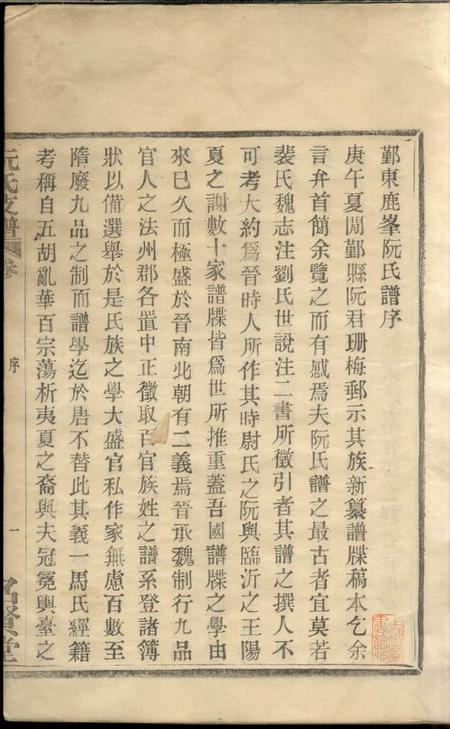 鄞東鹿峯阮氏譜序
庚午夏閒鄞縣阮君珊梅郵示其族新纂譜牒稿本乞余
言弁首簡余覽之而有感焉夫阮氏譜之最古者宜莫若
裴氏魏志注劉氏世說注二書所徵引者其譜之撰人不
可考大約爲晉時人所作其時尉氏之阮與臨沂之王陽
夏之謝數十家譜牒皆爲世所推重蓋吾國譜牒之學由
來已久而極盛於晉南北朝有二義焉晉承魏制行九品
官人之法州郡各置中正徵取百官族姓之譜系登諸簿
狀以備選舉於是氏族之學大盛官私作家無慮百數至
隋廢九品之制而譜學迄於唐不替此其義一馬氏經籍
考稱自五胡亂華百宗蕩析夷夏之裔與夫冠冕輿臺之
阮氏支譜
卷
序
一
名賢堂